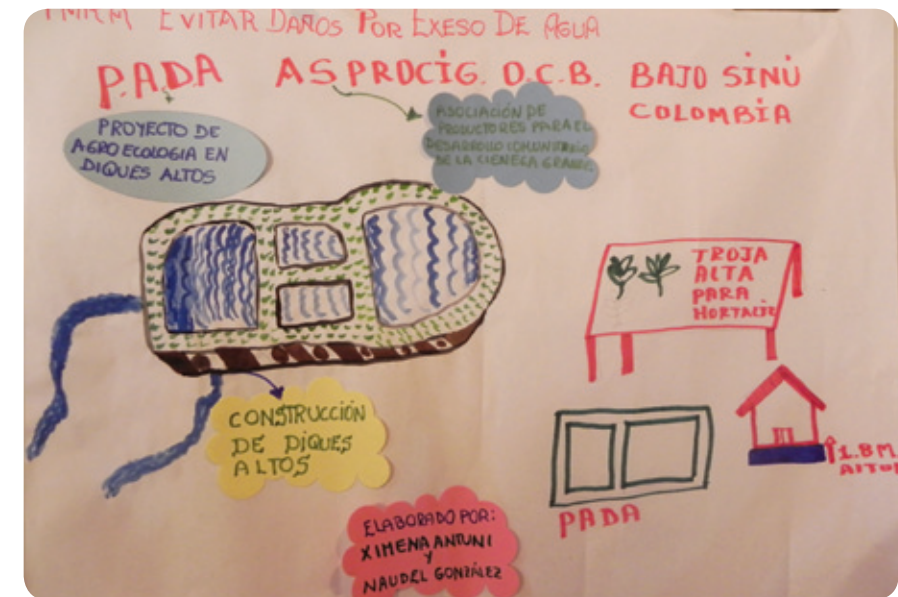 EVITAR DAÑOS POR EXESO DE AGUA
P.A.D.A ASPROCIG. D.C.B. BAJO SINÚ
COLOMBIA
PROYECTO DE
AGROECOLOGIA EN
DIQUES ALTOS
ASOCIACIÓN DE
PRODUCTORES PARA EL
DESARROLLO COMUNITARIO
DE LA CIENEGA GRANDE
TROJA
ALTA
PARA
CONSTRUCCIÓN
DE DIQUES
ALTOS
1.8 M
PADA
ELABORADO POR:
XIMENA ANTUNI
Y
NAUDEL GONZÁLEZ